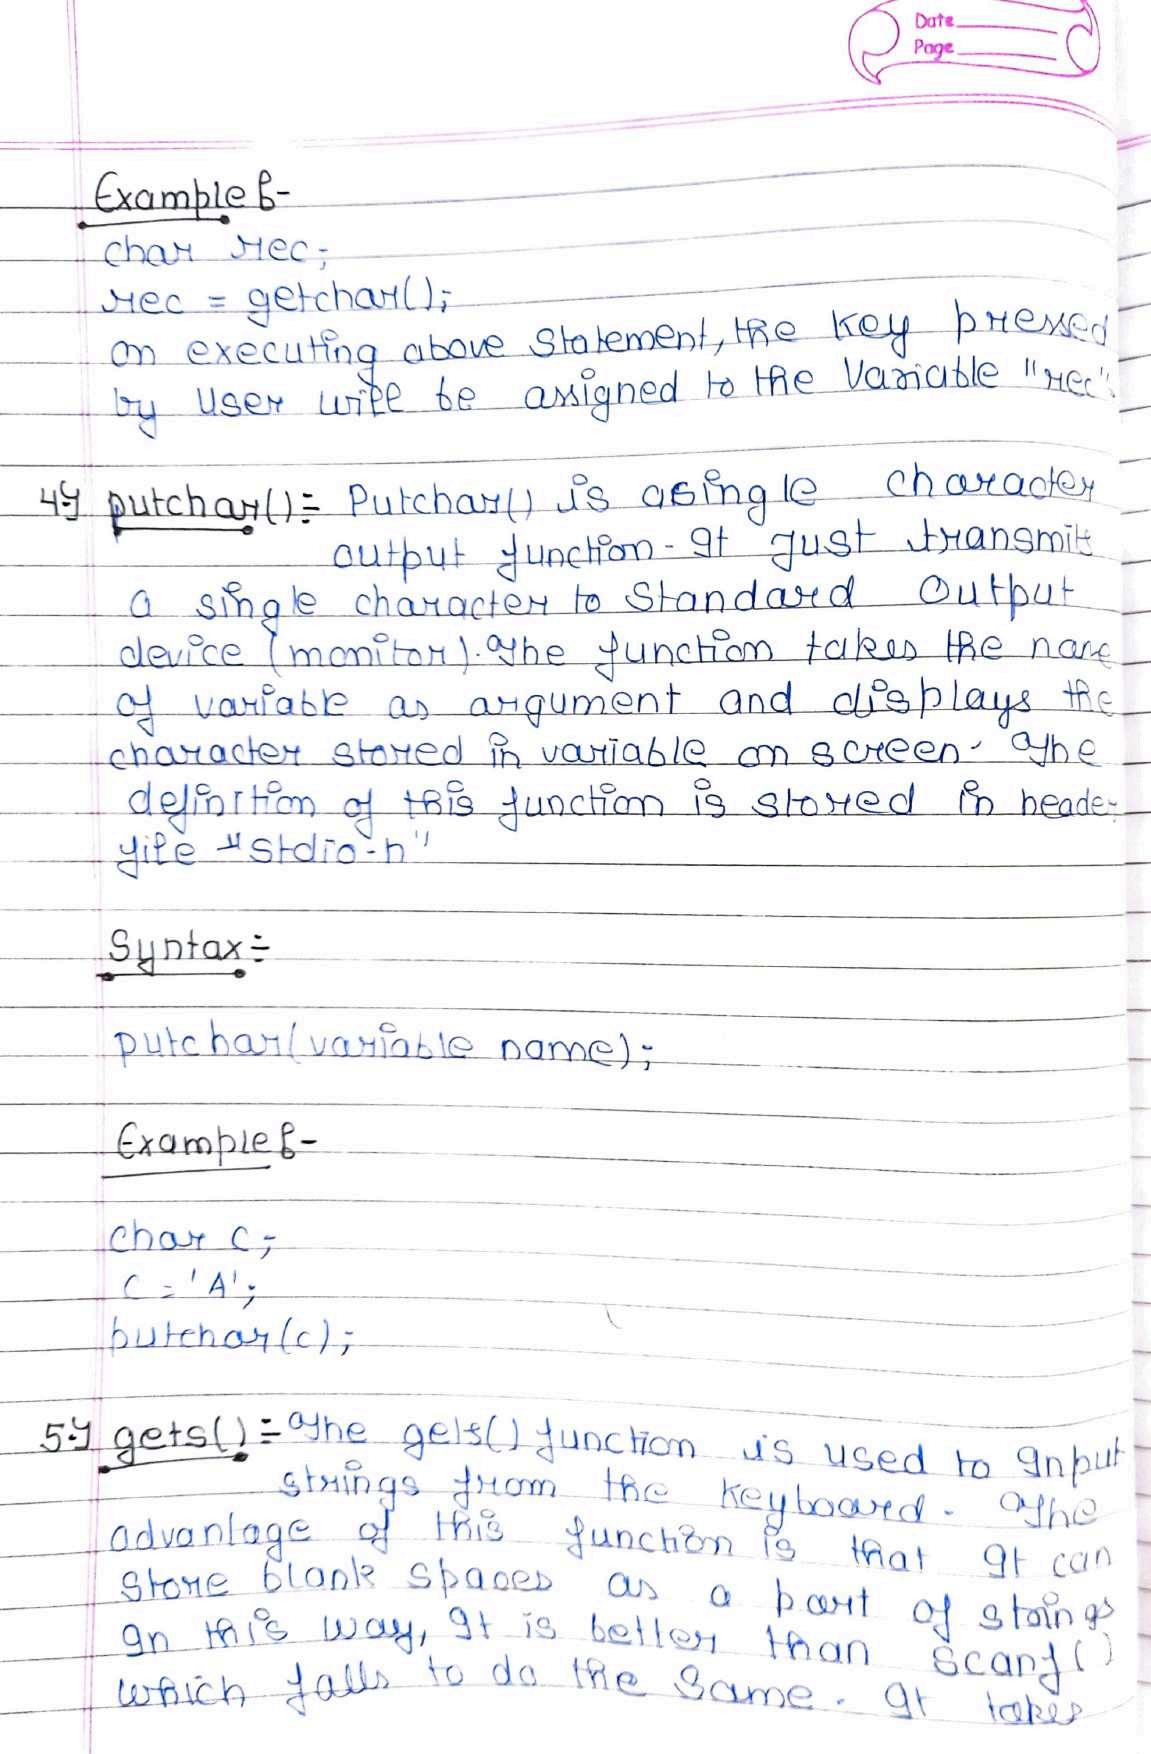 Date
Page
Example :-
char rec;
rec = getchar();
on executing above statement, the key pressed
by user will be assigned to the variable "rec".
4) putchar() :- Putchar() is a single character
output function. It just transmits
a single character to standard output
device (monitor). The function takes the name
of variable as argument and displays the
character stored in variable on screen. The
definition of this function is stored in header
file "stdio.h"
Syntax :-
putchar(variable name);
Example :-
char c;
c = 'A';
putchar(c);
5) gets() :- The gets() function is used to Input
strings from the keyboard. The
advantage of this function is that It can
store blank spaces as a part of stoings
In this way, It is better than scanf()
which falls to do the same. It takes